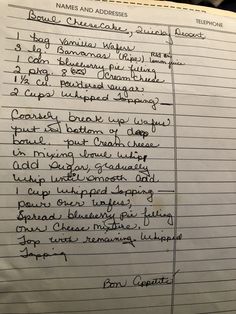 NAMES AND ADDRESSES
TELEPHONE
Bowl Cheesecake, Dessert
1 bag Vanilla Wafers
3 lg. Bananas (Ripe)
lemon juice
1 can blueberry pie filling
2 pkg. 8 oz Cream cheese
1 1/2 cu. Powdered sugar
2 cups Whipped Topping
Coarsely break up Wafers
put in bottom of deep
bowl. put Cream cheese
in mixing bowl whip
add sugar, gradually
whip until smooth add
1 cup whipped Topping —
pour over wafers,
Spread blueberry pie filling
over Cheese mixture.
Top with remaining whipped
Topping
Bon Appetite